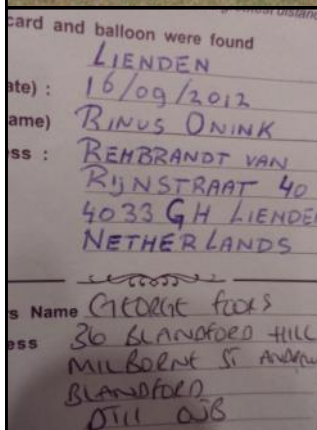 card and balloon were found
LIENDEN
ate) : 16/09/2012
ame) RINUS ONINK
ss : REMBRANDT VAN
RIJNSTRAAT 40
4033 GH LIENDEN
NETHERLANDS
s Name GEORGE
ess 36 BLANDFORD HILL
MILBORNE ST ANDREW
BLANDFORD
DT11 0JB